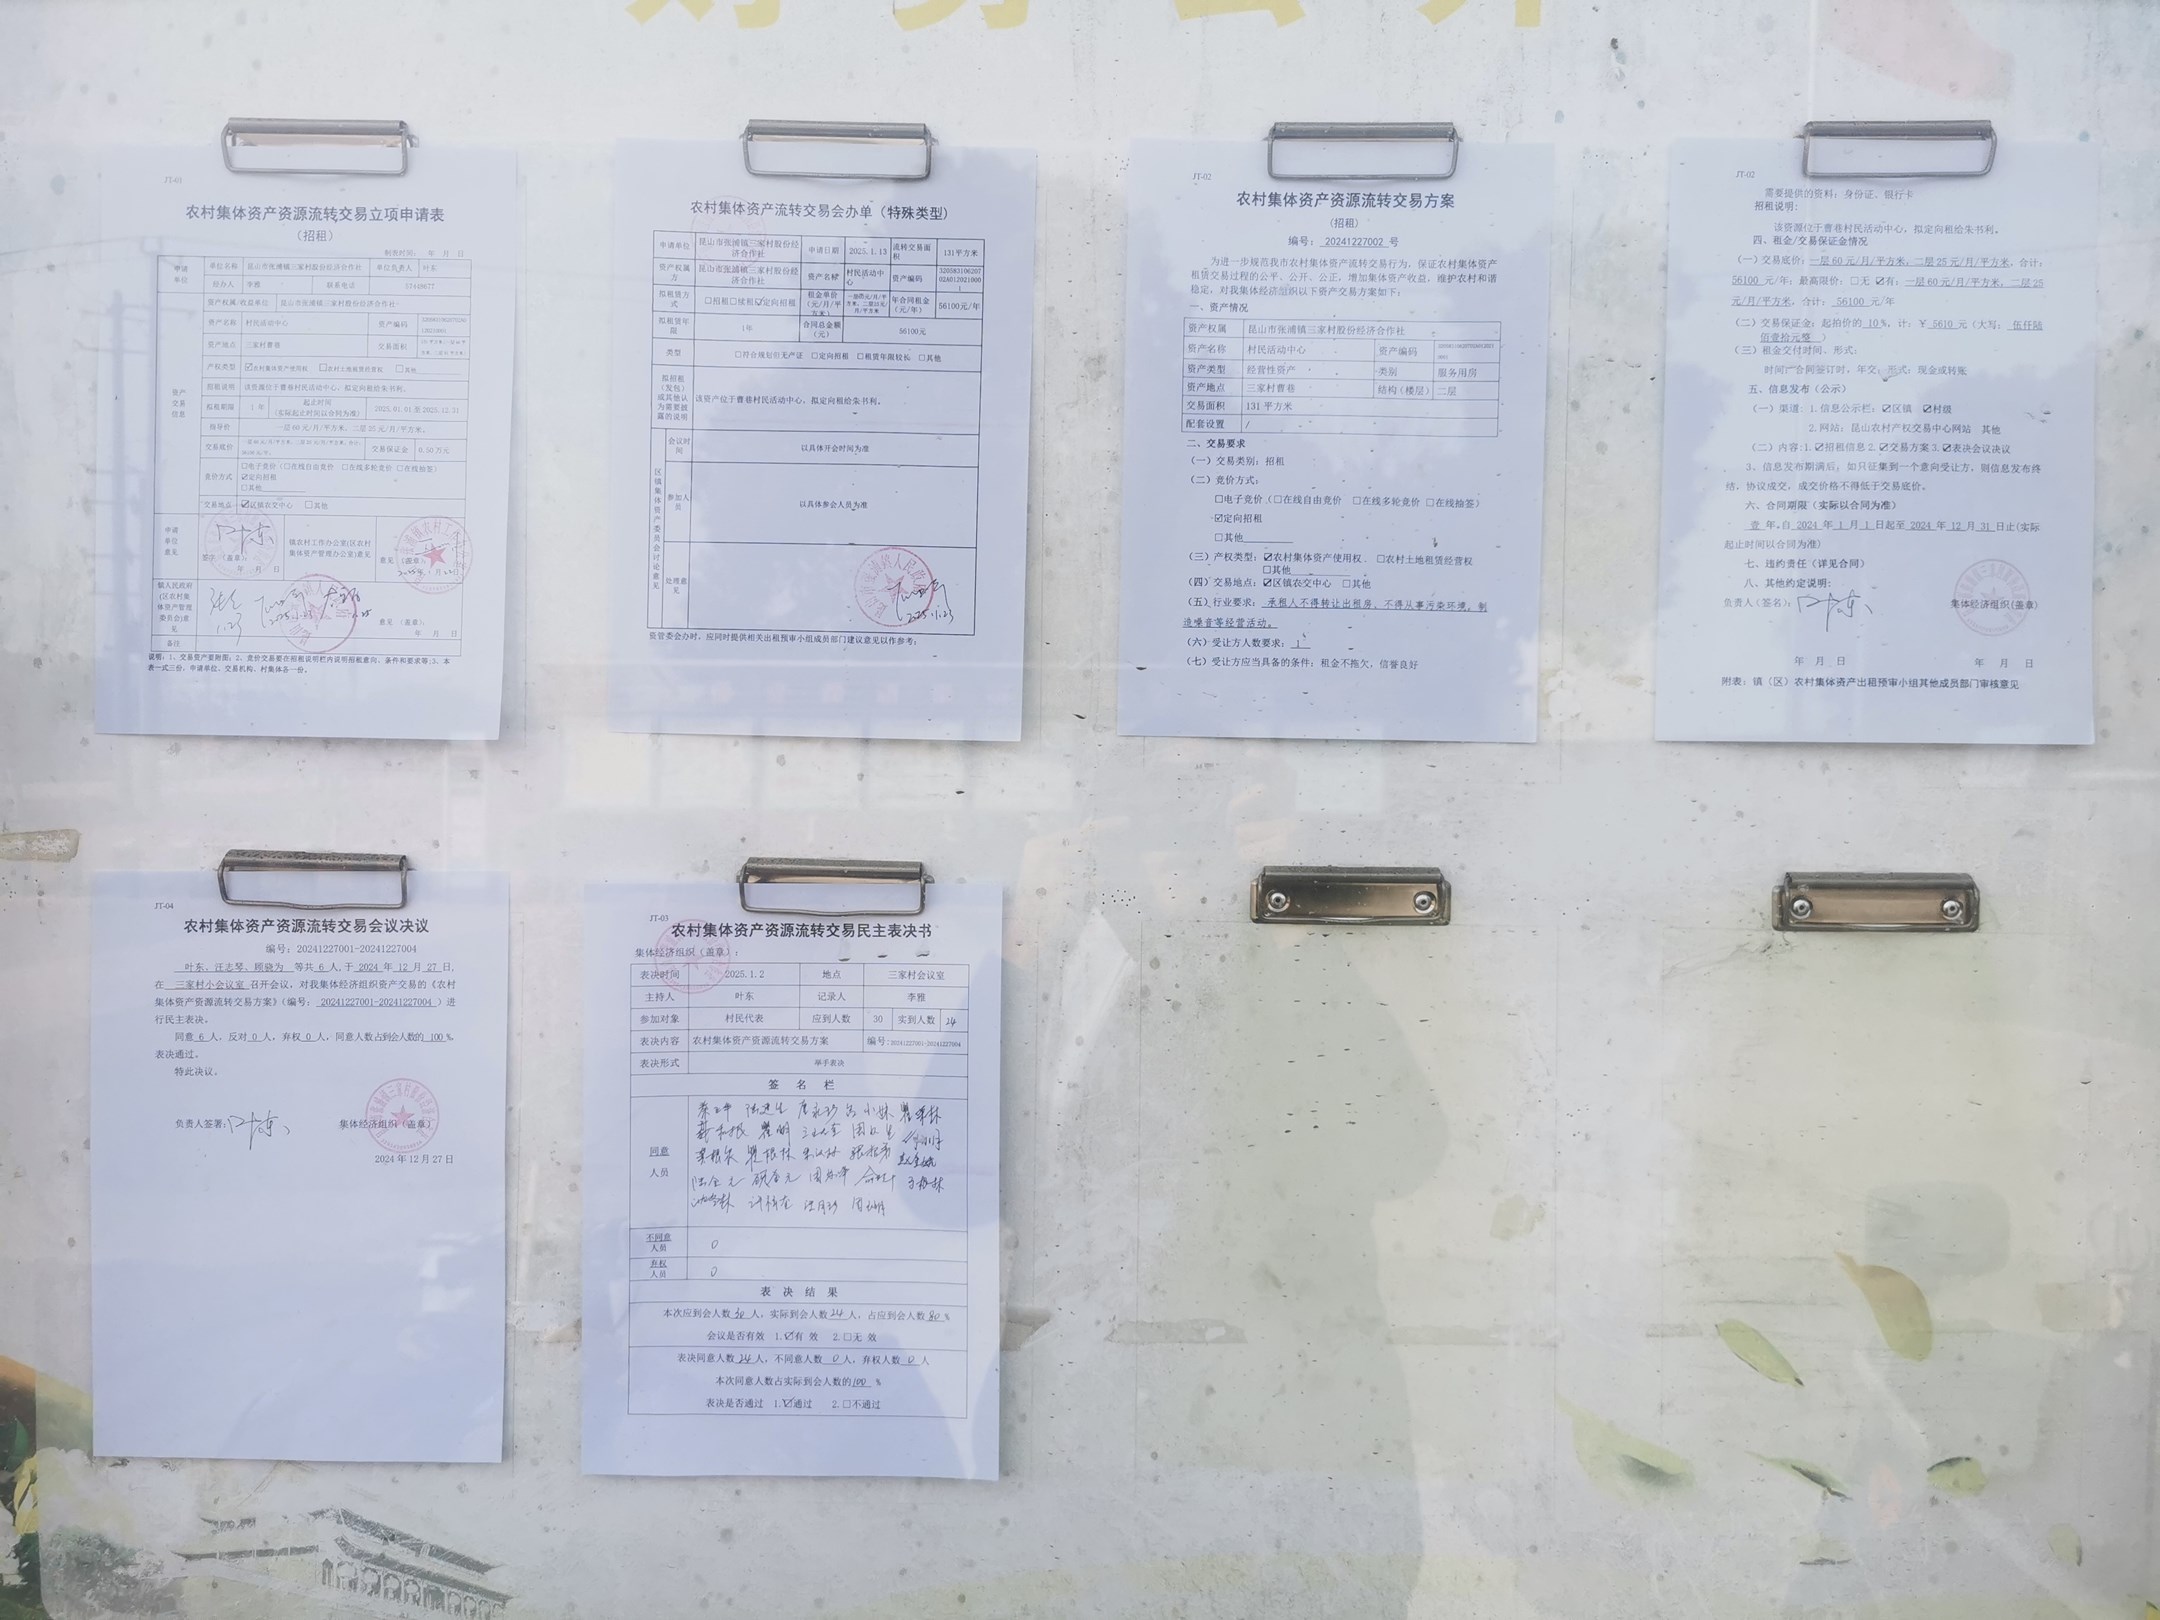 财务公开
JT-01
农村集体资产资源流转交易立项申请表
（招租）
制表时间： 年 月 日
申请单位 单位名称 昆山市张浦镇三家村股份经济合作社 单位负责人 叶东
经办人 李雅 联系电话 57449677
资产交易信息
资产权属/收益单位 昆山市张浦镇三家村股份经济合作社
资产名称 村民活动中心 资产编码
资产地点 三家村曹巷 交易面积
产权类型 ☑农村集体资产使用权 □农村土地租赁经营权 □其他
招租说明 该资源位于曹巷村民活动中心，拟定向租给朱书利。
拟租期限 1 年 起止时间（实际起止时间以合同为准） 2025.01.01 至 2025.12.31
指导价 一层60元/月/平方米，二层25元/月/平方米。
交易底价 交易保证金 0.50 万元
竞价方式 □电子竞价（□在线自由竞价 □在线多轮竞价 □在线抽签）
☑定向招租
□其他
交易地点 ☑区镇农交中心 □其他
申请单位意见 叶东 签字（盖章）： 年 月 日
镇农村工作办公室(区农村集体资产管理办公室)意见 意见（盖章）：
镇人民政府(区农村集体资产管理委员会)意见 意见（盖章）： 年 月 日
备注
说明：1、交易资产要附图；2、竞价交易要在招租说明栏内说明招租意向、条件和要求等；3、本
表一式三份，申请单位、交易机构、村集体各一份。
农村集体资产流转交易会办单（特殊类型）
申请单位 昆山市张浦镇三家村股份经济合作社 申请日期 2025.1.13 流转交易面积 131平方米
资产权属方 昆山市张浦镇三家村股份经济合作社 资产名称 村民活动中心 资产编码
拟租赁方式 □招租□续租☑定向招租 租金单价（元/月/平方米） 一层60元/月/平方米，二层25元/月/平方米 年合同租金（元/年） 56100元/年
拟租赁年限 1年 合同总金额（元） 56100元
类型 □符合规划但无产证 □定向招租 □租赁年限较长 □其他
拟招租（发包）或其他认为需要披露的说明 该资产位于曹巷村民活动中心，拟定向租给朱书利。
区镇集体资产委员会讨论意见
会议时间 以具体开会时间为准
参加人员 以具体参会人员为准
处理意见 2025.1.23
资管委会办时，应同时提供相关出租预审小组成员部门建议意见以作参考；
JT-02
农村集体资产资源流转交易方案
（招租）
编号： 20241227002 号
为进一步规范我市农村集体资产流转交易行为，保证农村集体资产
租赁交易过程的公平、公开、公正，增加集体资产收益，维护农村和谐
稳定，对我集体经济组织以下资产交易方案如下：
一、资产情况
资产权属 昆山市张浦镇三家村股份经济合作社
资产名称 村民活动中心 资产编码
资产类型 经营性资产 类别 服务用房
资产地点 三家村曹巷 结构（楼层） 二层
交易面积 131 平方米
配套设置 /
二、交易要求
（一）交易类别：招租
（二）竞价方式：
□电子竞价（□在线自由竞价 □在线多轮竞价 □在线抽签）
☑定向招租
□其他
（三）产权类型：☑农村集体资产使用权 、□农村土地租赁经营权
□其他
（四）交易地点：☑区镇农交中心 □其他
（五）行业要求： 承租人不得转让出租房、不得从事污染环境、制
造噪音等经营活动。
（六）受让方人数要求： 1
（七）受让方应当具备的条件：租金不拖欠，信誉良好
JT-02
需要提供的资料：身份证、银行卡
招租说明：
该资源位于曹巷村民活动中心，拟定向租给朱书利。
四、租金/交易保证金情况
（一）交易底价：一层 60 元/月/平方米，二层 25 元/月/平方米，合计：
56100 元/年；最高限价：□无 ☑有：一层 60 元/月/平方米，二层 25
元/月/平方米，合计： 56100 元/年
（二）交易保证金：起拍价的 10 %，计：￥ 5610 元（大写： 伍仟陆
佰壹拾元整 ）
（三）租金交付时间、形式：
时间：合同签订时，年交；形式：现金或转账
五、信息发布（公示）
（一）渠道：1.信息公示栏：☑区镇 ☑村级
2.网站：昆山农村产权交易中心网站 其他
（二）内容：1.☑招租信息 2.☑交易方案 3.☑表决会议决议
3、信息发布期满后；如只征集到一个意向受让方，则信息发布终
结，协议成交，成交价格不得低于交易底价。
六、合同期限（实际以合同为准）
壹 年，自 2024 年 1 月 1 日起至 2024 年 12 月 31 日止(实际
起止时间以合同为准)
七、违约责任（详见合同）
八、其他约定说明：
负责人（签名）：叶东 集体经济组织(盖章)
年 月 日 年 月 日
附表：镇（区）农村集体资产出租预审小组其他成员部门审核意见
JT-04
农村集体资产资源流转交易会议决议
编号：20241227001-20241227004
叶东、汪志琴、顾晓为 等共 6 人，于 2024 年 12 月 27 日，
在 三家村小会议室 召开会议，对我集体经济组织资产交易的《农村
集体资产资源流转交易方案》（编号： 20241227001-20241227004 ）进
行民主表决。
同意 6 人，反对 0 人，弃权 0 人，同意人数占到会人数的 100 %，
表决通过。
特此决议。
负责人签署：叶东 集体经济组织（盖章）
2024 年 12 月 27 日
JT-03
农村集体资产资源流转交易民主表决书
集体经济组织（盖章）：
表决时间 2025.1.2 地点 三家村会议室
主持人 叶东 记录人 李雅
参加对象 村民代表 应到人数 30 实到人数 24
表决内容 农村集体资产资源流转交易方案 编号：20241227001-20241227004
表决形式 举手表决
签 名 栏
同意人员
不同意人员 0
弃权人员 0
表 决 结 果
本次应到会人数 30 人，实际到会人数 24 人，占应到会人数 80 %
会议是否有效 1.☑有 效 2.□无 效
表决同意人数 24 人，不同意人数 0 人，弃权人数 0 人
本次同意人数占实际到会人数的 100 %
表决是否通过 1.☑通过 2.□不通过